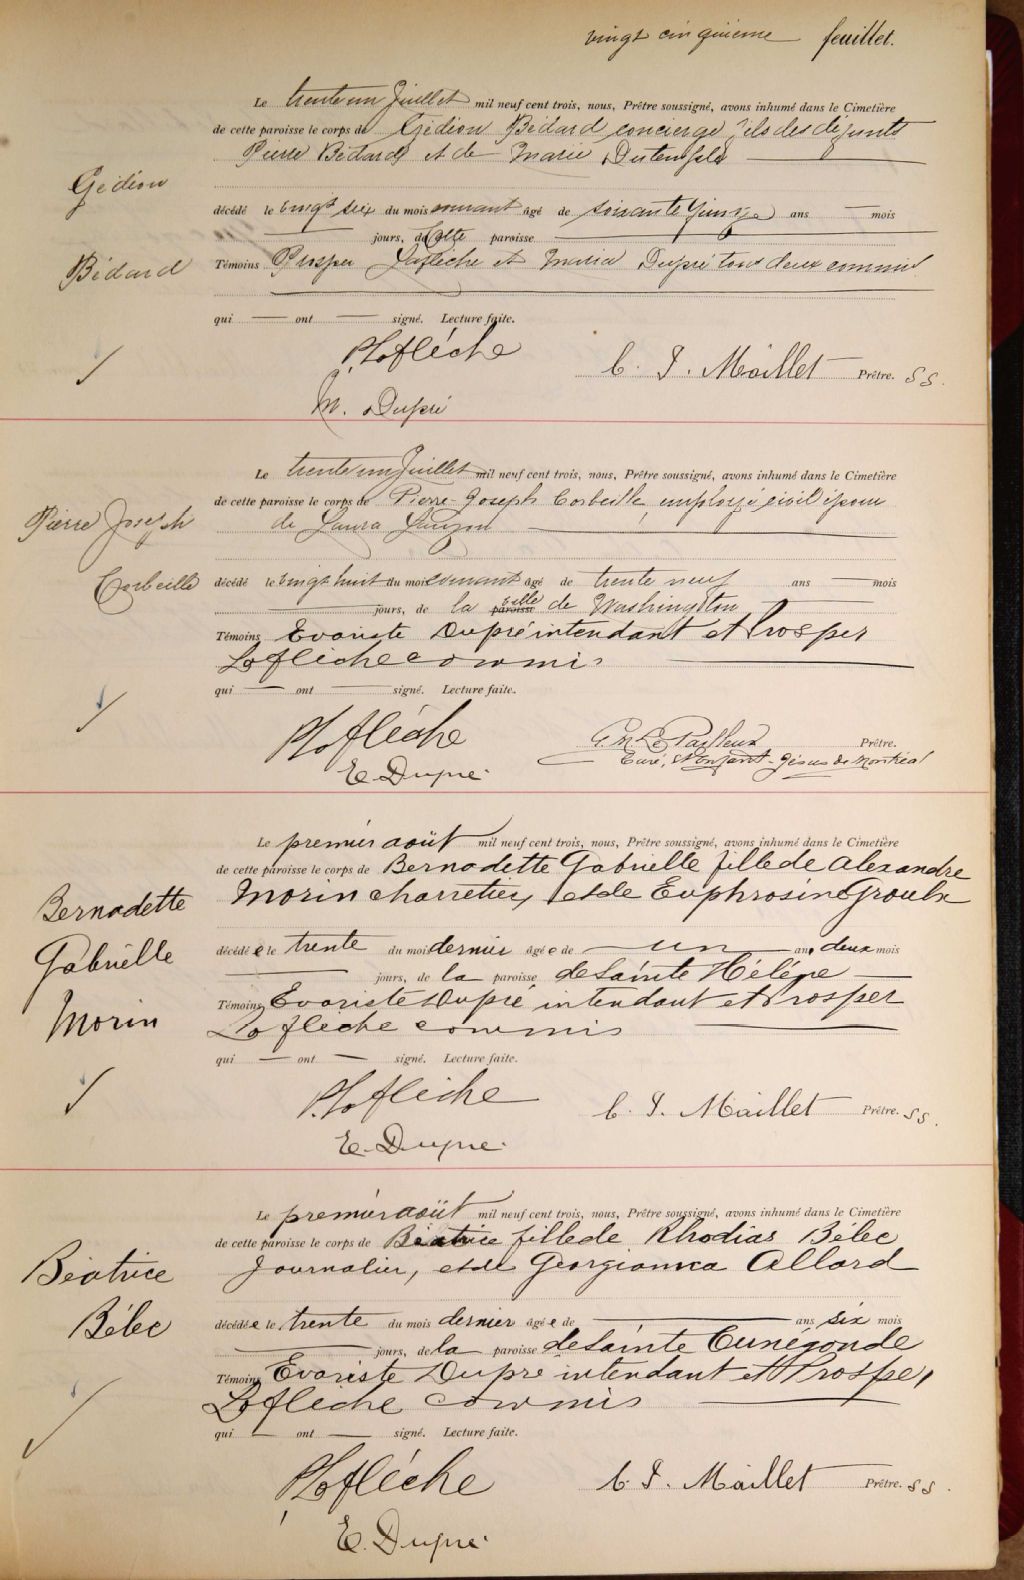 vingt cinquième feuillet.
Le trente un Juillet mil neuf cent trois, nous, Prêtre soussigné, avons inhumé dans le Cimetière
de cette paroisse le corps de Gédion Bédard concierge fils des défunts
Pierre Bédard et de Marie
Gédion
décédé le vingt six du mois courant âgé de soixante quinze ans — mois
— jours, de Cette paroisse
Bédard
Témoins Prosper Laflèche et Maria Dupré tous deux commis
qui — ont — signé. Lecture faite.
P. Lafléche
C. J. Maillet Prêtre. S S.
M. Dupré
Le trente un Juillet mil neuf cent trois, nous, Prêtre soussigné, avons inhumé dans le Cimetière
de cette paroisse le corps de Pierre-Joseph Corbeille, employé civil époux
Pierre Joseph
de Laura Lauzon
Corbeille
décédé le vingt huit du mois courant âgé de trente neuf ans — mois
— jours, de la paroisse ville de Washington
Témoins Evariste Dupré intendant et Prosper
Laflèche commis
qui — ont — signé. Lecture faite.
P. Lafléche
G. M. Le Pailleur Prêtre.
Curé, St Enfant-Jésus de Montréal
E. Dupré.
Le premier août mil neuf cent trois, nous, Prêtre soussigné, avons inhumé dans le Cimetière
de cette paroisse le corps de Bernadette Gabrielle fille de Alexandre
Bernadette
Morin charretier, et de Euphrosine Groulx
Gabrielle
décédée le trente du mois dernier âgée de — un — an, deux mois
— jours, de la paroisse de Sainte Hélène —
Morin
Témoins Evariste Dupré, intendant et Prosper
Laflèche commis
qui — ont — signé. Lecture faite.
P. Lafléche
C. J. Maillet Prêtre. S S.
E. Dupré.
Le premier août mil neuf cent trois, nous, Prêtre soussigné, avons inhumé dans le Cimetière
de cette paroisse le corps de Béatrice fille de Rhodias Bélec
Béatrice
Journalier, et de Georgianna Allard
Bélec
décédée le trente du mois dernier âgée de — ans six mois
— jours, de la paroisse de Sainte Cunégonde
Témoins Evariste Dupré intendant et Prosper
Laflèche commis
qui — ont — signé. Lecture faite.
P. Lafléche
C. J. Maillet Prêtre. S S.
E. Dupré.